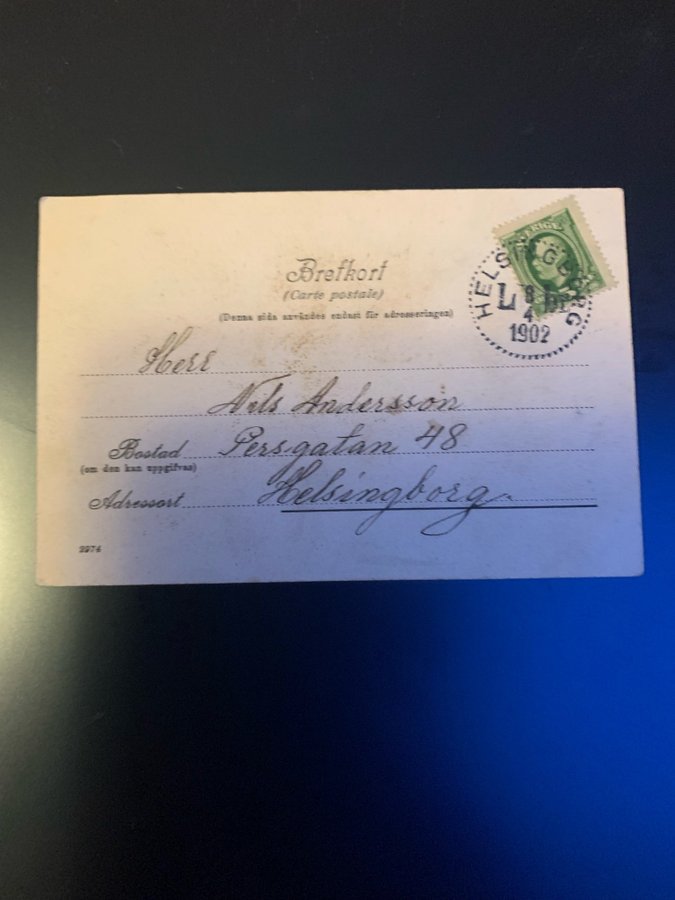 Brefkort
(Carte postale)
(Denna sida användes endast för adresseringen)
HELSINGBORG
L
8
4
1902
Herr
Nils Andersson
Bostad Persgatan 48
(om den kan uppgifvas)
Adressort Helsingborg.
2974